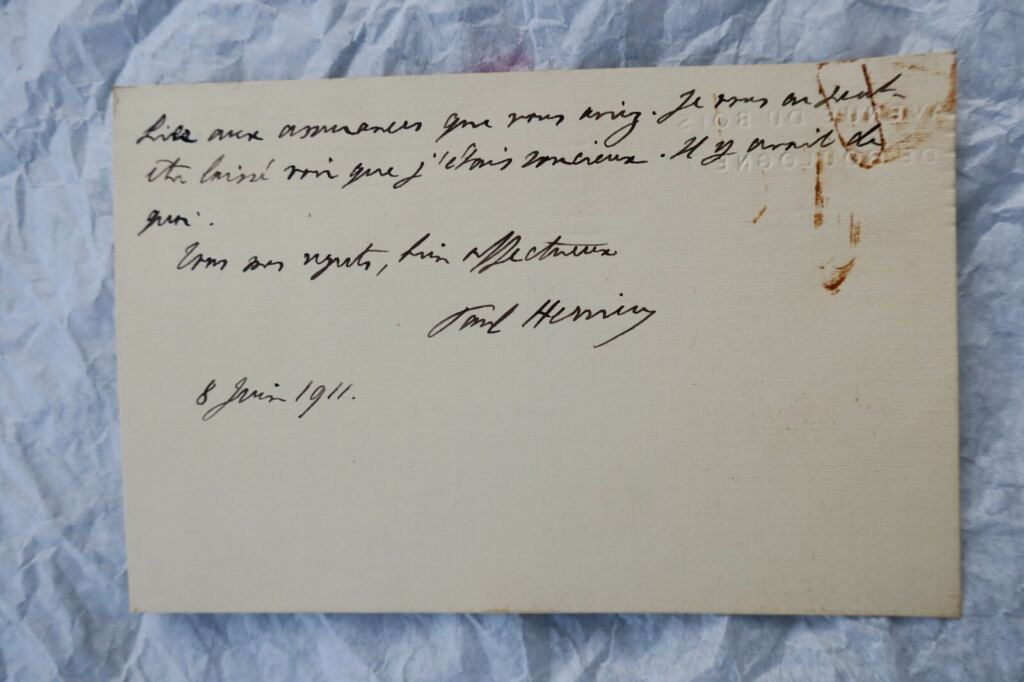 liez aux assurances que vous aviez. Je vous ai peut-
être laissé voir que j'étais soucieux. Il y avait de
quoi.
Tous mes regrets, bien affectueux
Paul Hervieu
8 Juin 1911.
AVENUE DU BOIS
DE BOULOGNE